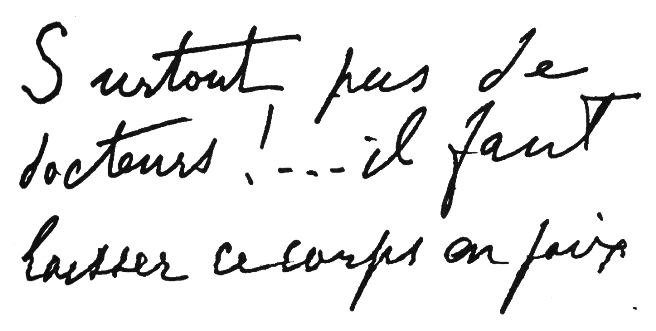 Surtout pas de
docteurs !....il faut
laisser ce corps en paix